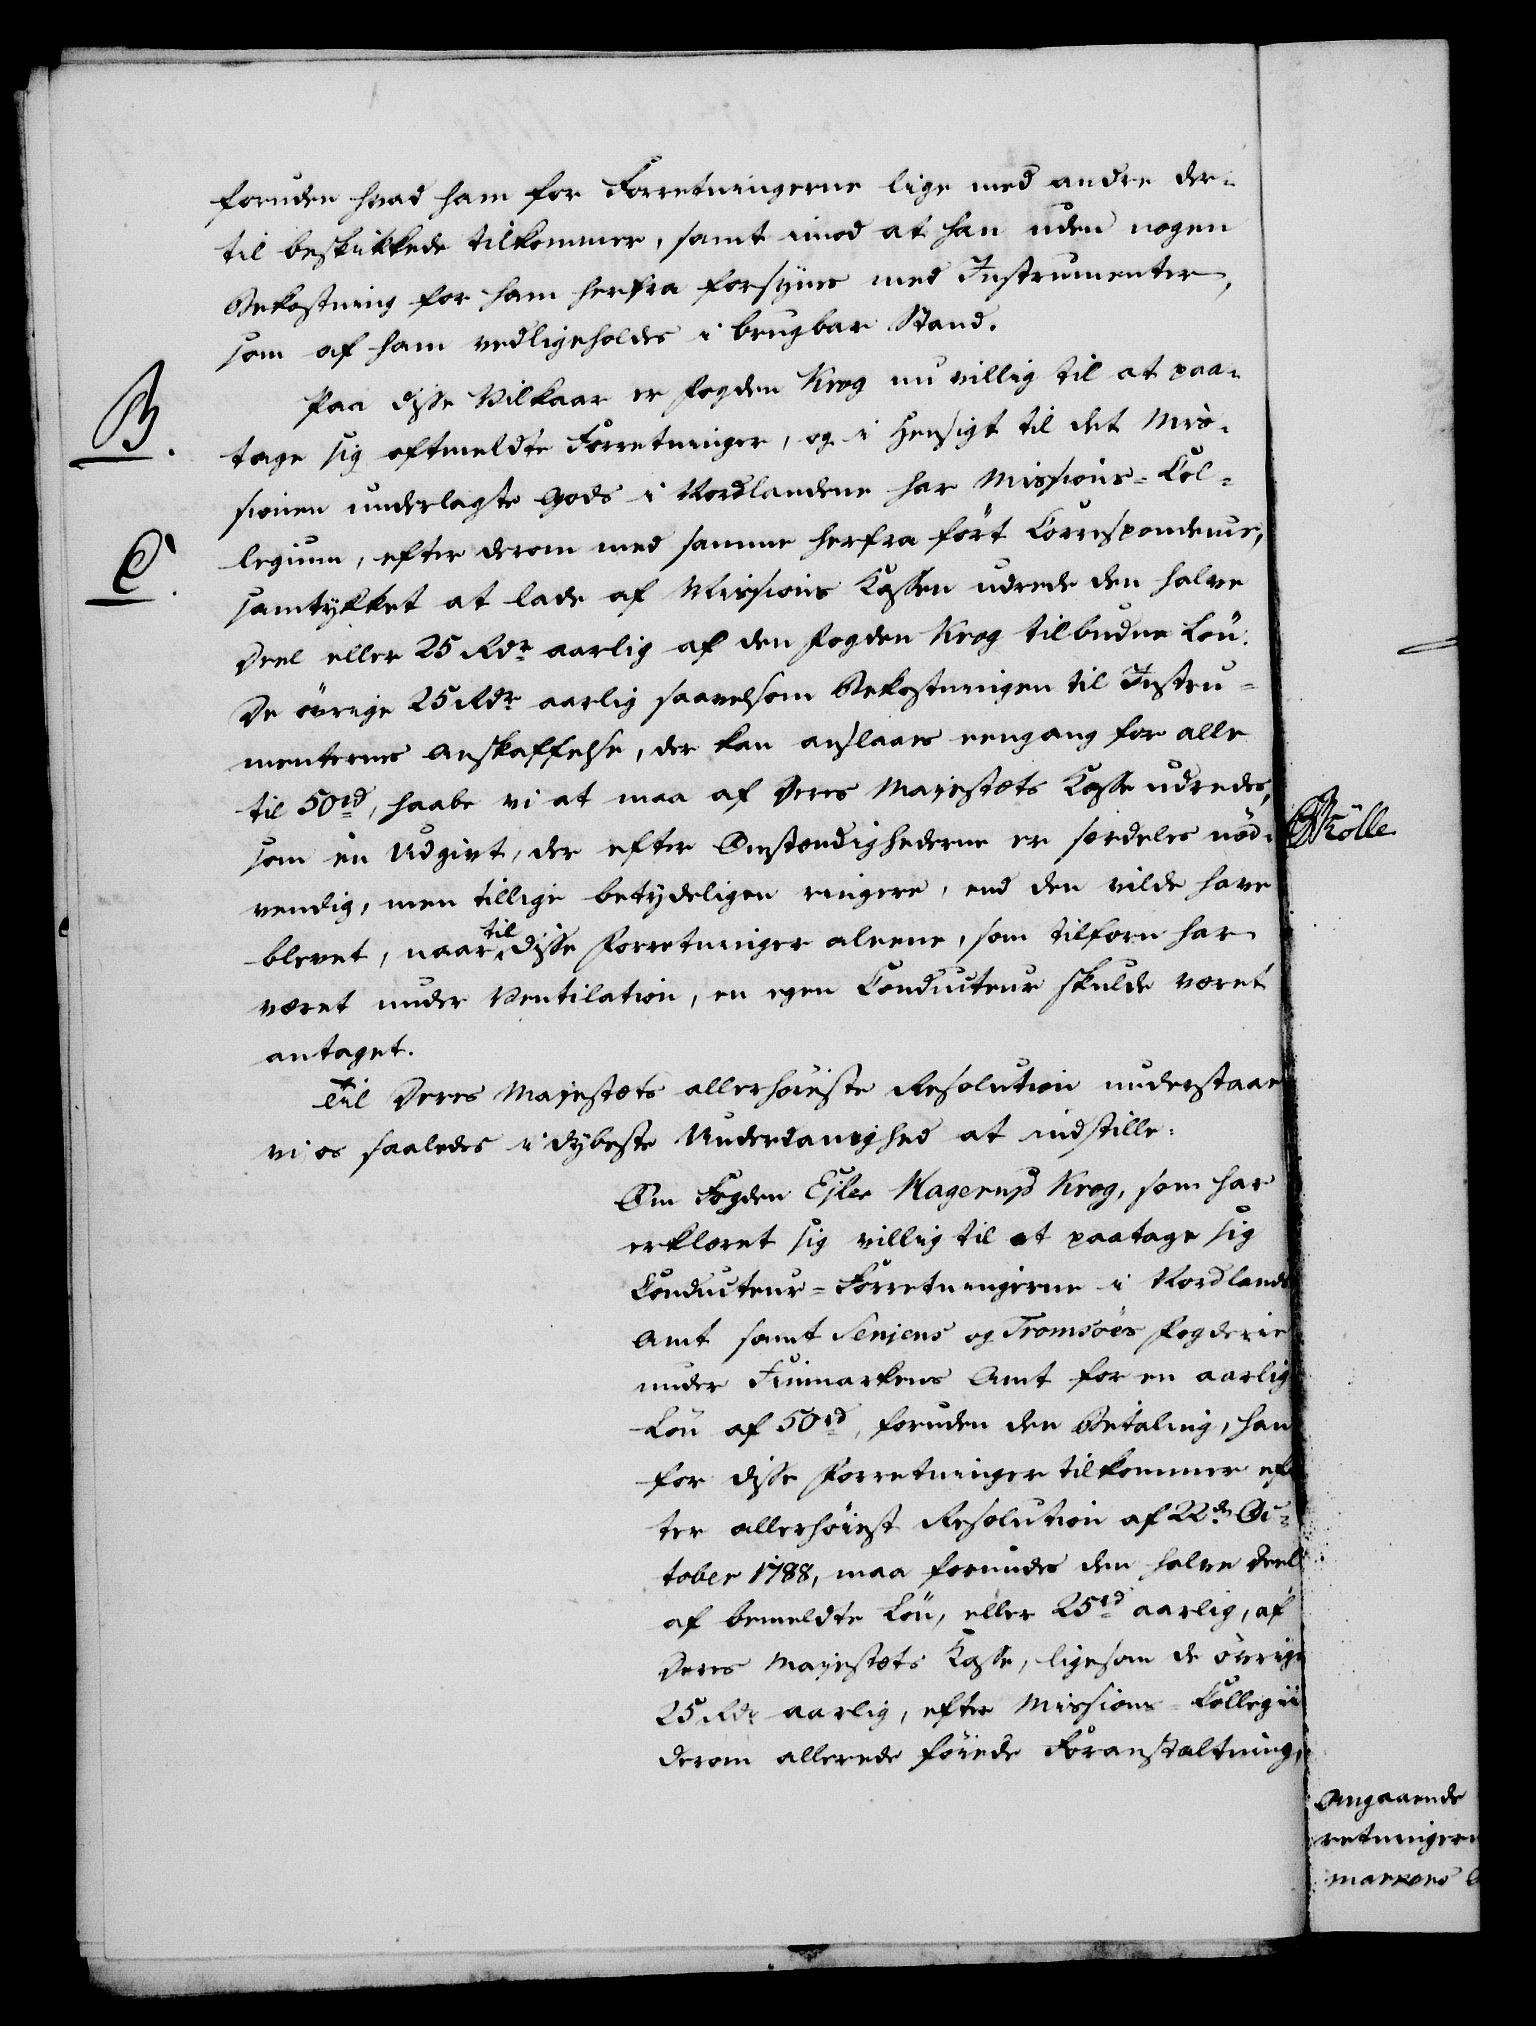 foruden hvad ham for Forretningerne lige med andre der-
til beskikkede tilkommer, samt imod at han uden nogen
Bekostning for ham herfra forsynes med Instrumenter,
som af ham vedligeholdes i brugbar Stand.
Paa disse Vilkaar er Fogden Krog nu villig til at paa-
B.
tage sig oftmeldte Forretninger, og i Hensigt til det Mis-
sionen underlagte Gods i Nordlandene har Missions-Col-
C.
legium, efter derom med samme herfra ført Correspondence,
samtykket at lade af Missions Kassen udrede den halve
Deel eller 25 Rdr aarlig af den Fogden Krog tilbudne Løn.
De øvrige 25 Rdr aarlig saavelsom Bekostningen til Instru-
menternes Anskaffelse, der kan anslaaes eengang for alle
til 50 rd, haabe vi at maa af Deres Majestæts Kasse udredes,
som en Udgivt, der efter Omstændighederne er særdeles nød-
vendig, men tillige betydeligen ringere, end den vilde have
blevet, naar til disse Forretninger aleene, som tilforn har
været under Ventilation, en egen Conducteur skulde været
antaget.
Til Deres Majestæts allerhøieste Resolution understaae
vi os saaledes i dybeste Underdanighed at indstille:
Om Fogden Ejler Hagerup Krog, som har
erklæret sig villig til at paatage sig
Conducteur-Forretningerne i Nordlands
Amt samt Senjens og Tromsøes Fogderie
under Finmarkens Amt for en aarlig
Løn af 50 rd, foruden den Betaling, han
for disse Forretninger tilkommer ef-
ter allerhøiest Resolution af 22de Oc-
tober 1788, maa forundes den halve Deel
af bemeldte Løn, eller 25 rd aarlig, af
Deres Majestæts Kasse, ligesom de øvrige
25 Rdr aarlig, efter Missions-Collegii
derom allerede føiede Foranstaltning,
Mølle
Angaaende
retningern
markens